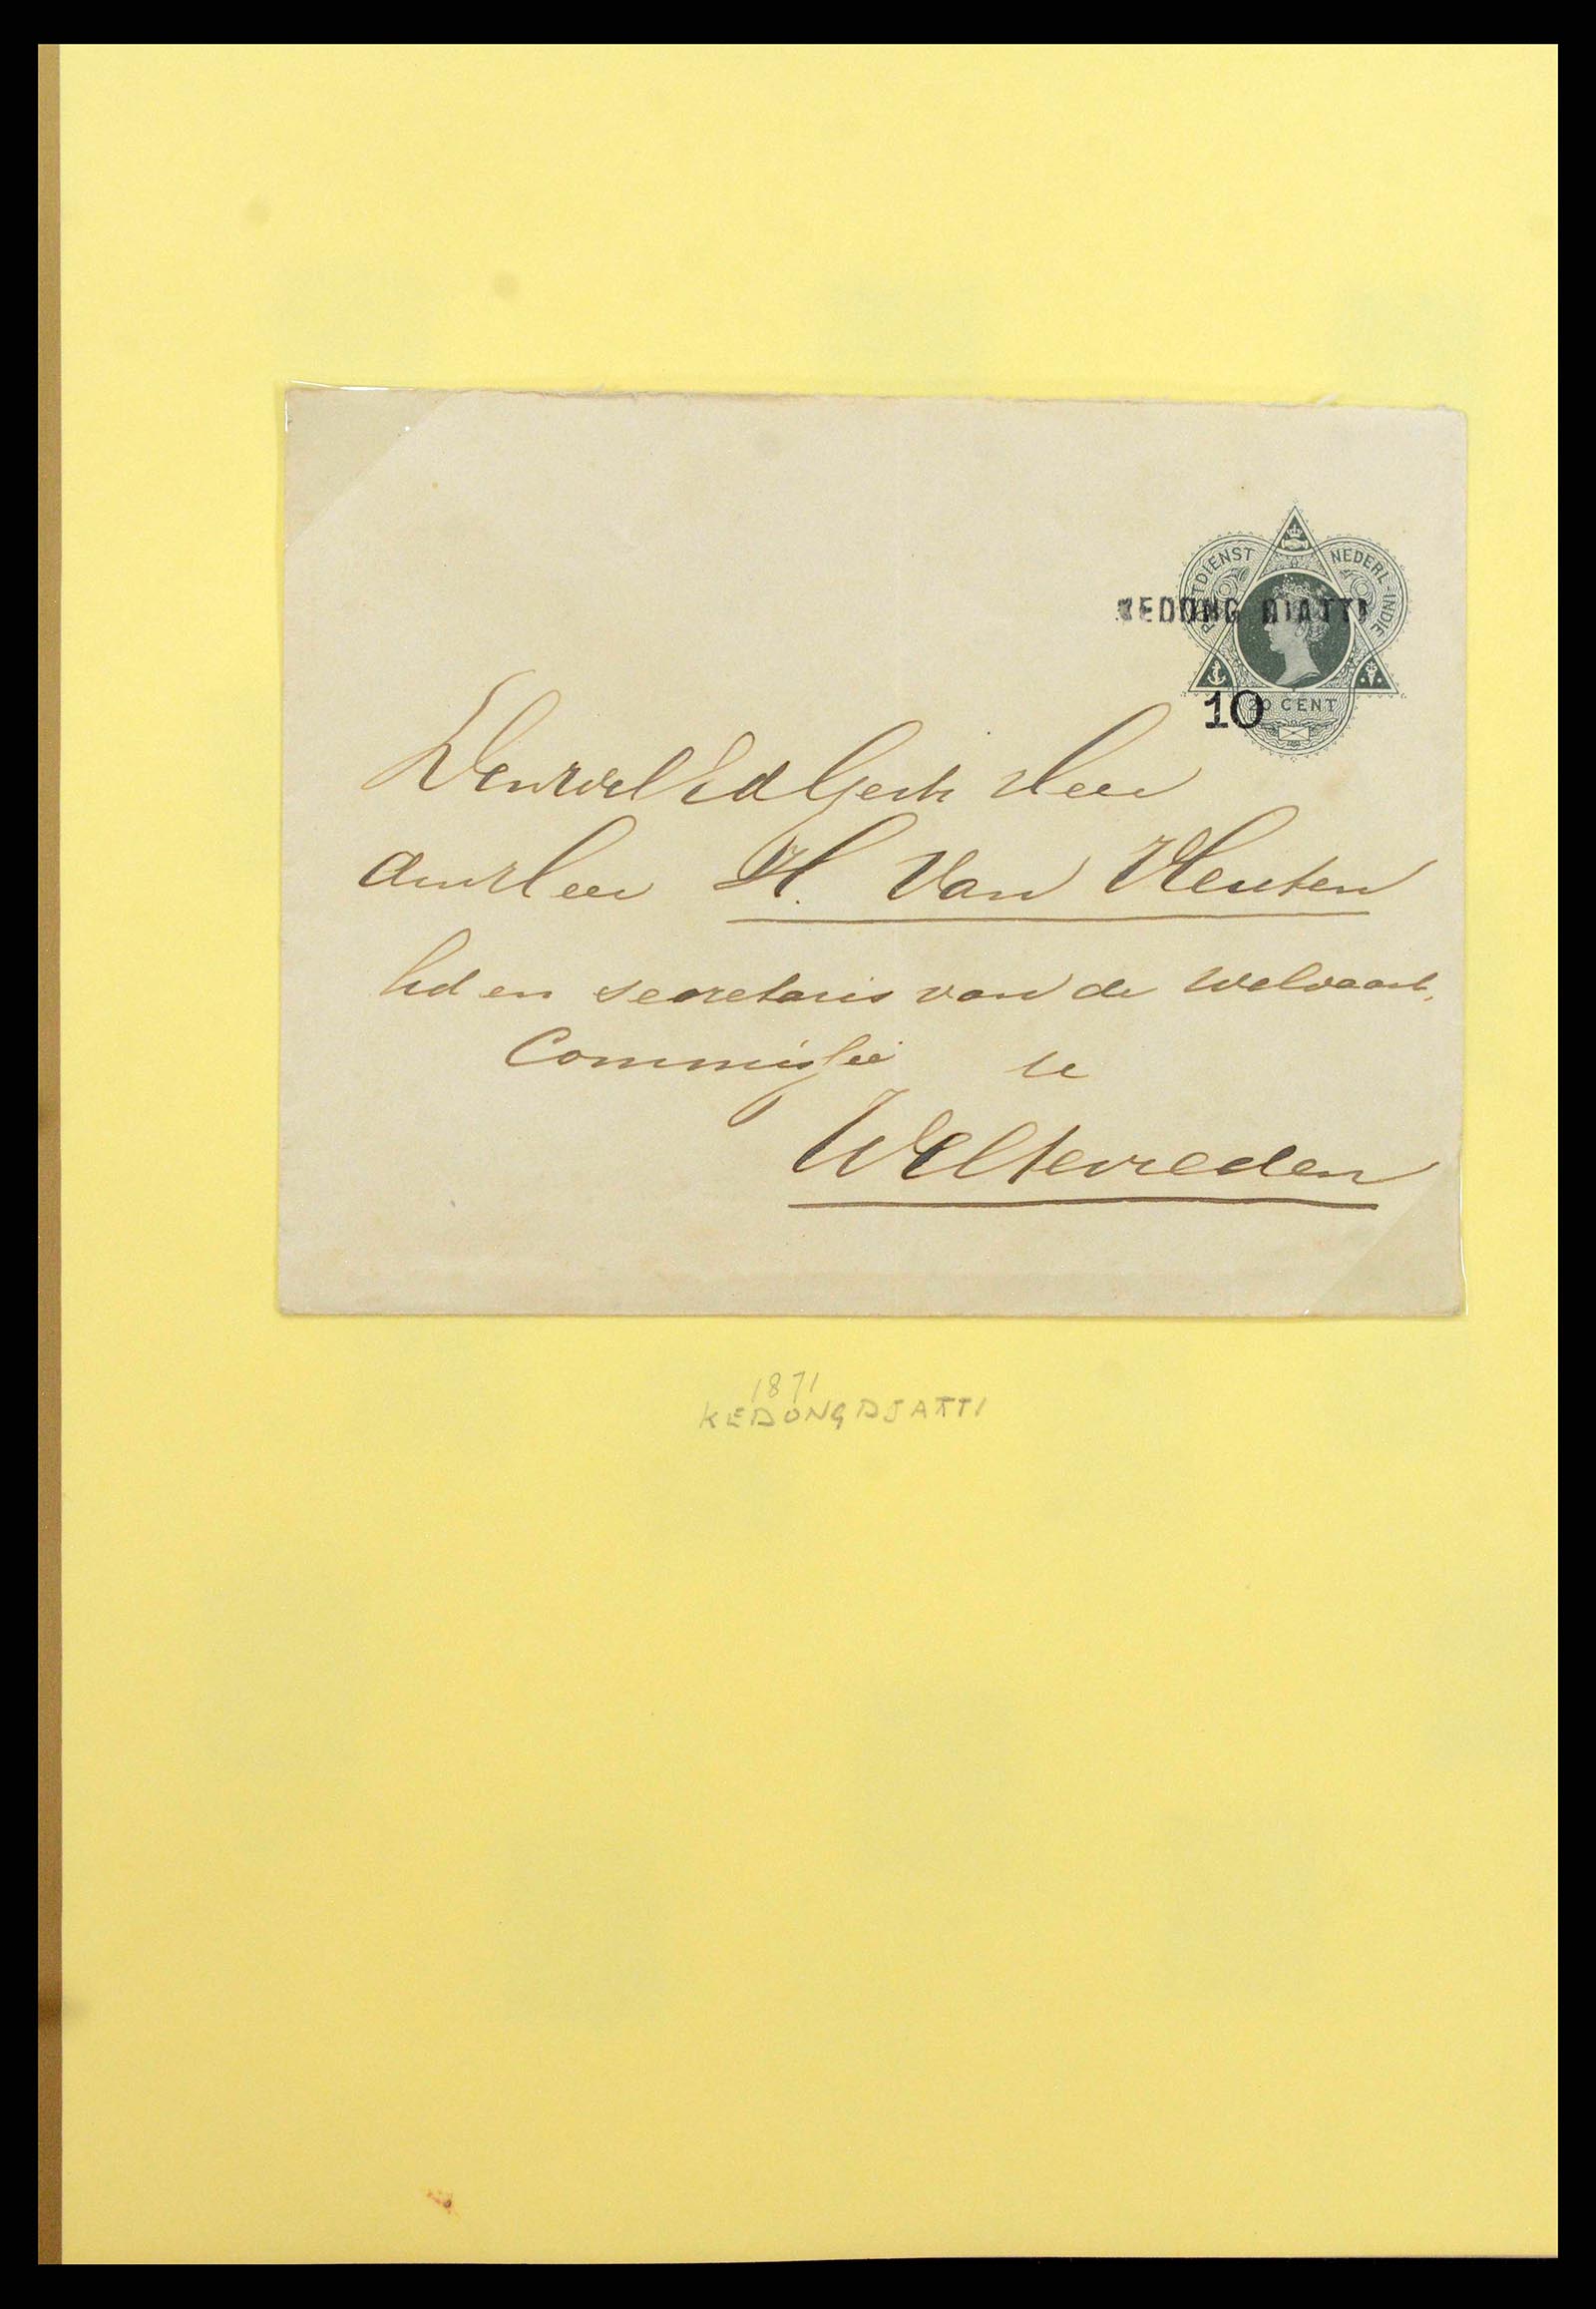 POSTDIENST NEDERL-INDIE
KEDONG DJATTI
10
20 CENT
Heer
H. Van Heuten
lid en secretaris van de Welvaart,
Commissie te
Weltevreden
1871
KEDONGDJATTI